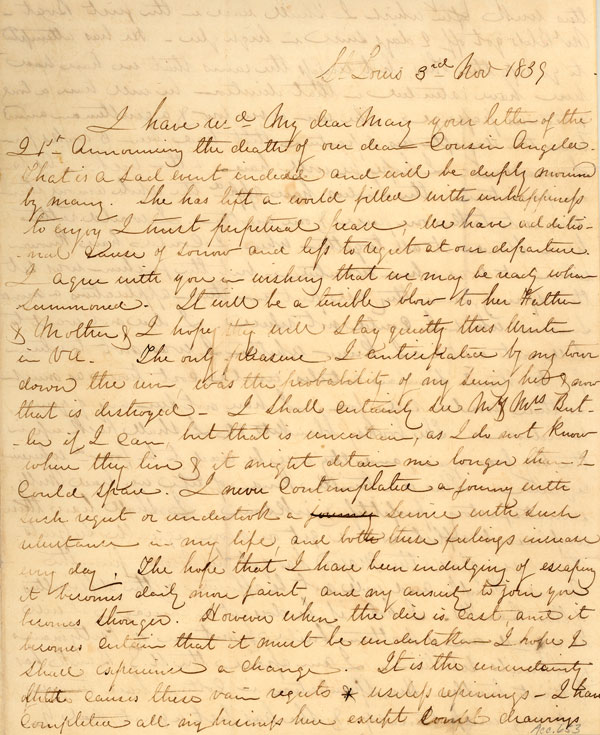 St Louis 3rd Nov 1839
I have recd My dear Mary your letter of the
21st Announcing the death of our dear Cousin Angela.
That is a sad event indeed and will be deeply mourned
by many. She has left a world filled with unhappiness
to enjoy I trust perpetual peace, We have additio-
-nal cause of sorrow and less to regret at our departure.
I agree with you in wishing that we may be ready when
Summoned. It will be a terrible blow to her Father
& Mother & I hope they will stay quietly this Winter
in Va. The only pleasure I anticipated by my tour
down the river was the probability of my seeing her & now
that is destroyed - I shall certainly see Mr & Mrs But-
-ler if I can, but that is uncertain, as I do not know
where they live & it might detain me longer than I
Could spare. I never Contemplated a journey with
such regret or undertook a journey service with such
reluctance in my life, and both these feelings increase
every day. The hope that I have been indulging of escaping
it becomes daily more faint, and my anxiety to join you
becomes stronger. However when the die is cast and it
becomes certain that it must be undertaken I hope I
shall experience a change. It is the uncertainty
that causes these vain regrets & useless repinings - I have
Completed all my business here except drawings
Acc. 653